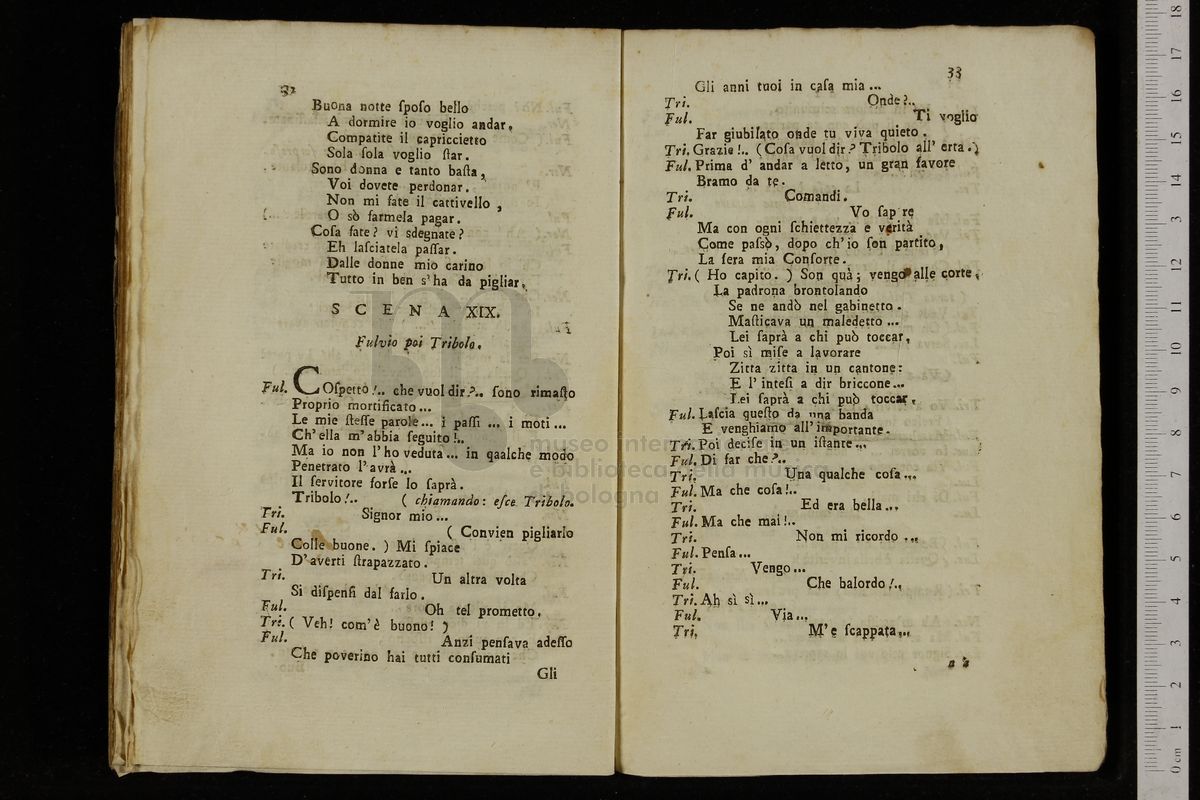 32
Buona notte ſpoſo bello
A dormire io voglio andar,
Compatite il capriccietto
Sola ſola voglio ſtar.
Sono donna e tanto baſta,
Voi dovete perdonar.
Non mi fate il cattivello,
O sò farmela pagar.
Coſa fate? vi sdegnate?
Eh laſciatela paſſar.
Dalle donne mio carino
Tutto in ben s'ha da pigliar.
SCENA XIX.
Fulvio poi Tribolo.
Ful. COſpetto!.. che vuol dir?.. ſono rimaſto
Proprio mortificato...
Le mie ſteſſe parole... i paſſi ... i moti...
Ch'ella m'abbia ſeguito!..
Ma io non l'ho veduta... in qaalche modo
Penetrato l'avrà...
Il ſervitore forſe lo ſaprà.
Tribolo!.. ( chiamando: eſce Tribolo.
Tri. Signor mio...
Ful. ( Convien pigliarlo
Colle buone. ) Mi ſpiace
D'averti ſtrapazzato.
Tri. Un altra volta
Si diſpenſi dal farlo.
Ful. Oh tel prometto.
Tri. ( Veh! com'è buono! )
Ful. Anzi penſava adeſſo
Che poverino hai tutti conſumati
Gli
33
Gli anni tuoi in caſa mia...
Tri. Onde?..
Ful. Ti voglio
Far giubilato onde tu viva quieto.
Tri. Grazie!.. ( Coſa vuol dir? Tribolo all' erta.)
Ful. Prima d' andar a letto, un gran favore
Bramo da te.
Tri. Comandi.
Ful. Vo ſap re
Ma con ogni ſchiettezza e verità
Come paſsò, dopo ch'io ſon partito,
La ſera mia Conſorte.
Tri. ( Ho capito. ) Son quà; vengo alle corte,
La padrona brontolando
Se ne andò nel gabinetto.
Maſticava un maledetto...
Lei ſaprà a chi può toccar,
Poi sì miſe a lavorare
Zitta zitta in un cantone:
E l'inteſi a dir briccone...
Lei ſaprà a chi può toccar,
Ful. Laſcia queſto da una banda
E venghiamo all'importante.
Tri. Poi deciſe in un iſtante...
Ful. Di far che?..
Tri. Una qualche coſa...
Ful. Ma che coſa!..
Tri. Ed era bella...
Ful. Ma che mai!..
Tri. Non mi ricordo...
Ful. Penſa...
Tri. Vengo...
Ful. Che balordo!..
Tri. Ah sì sì...
Ful. Via...
Tri. M'e ſcappata...
museo internazionale
e biblioteca della musica
di bologna
0 cm 1 2 3 4 5 6 7 8 9 10 11 12 13 14 15 16 17 18